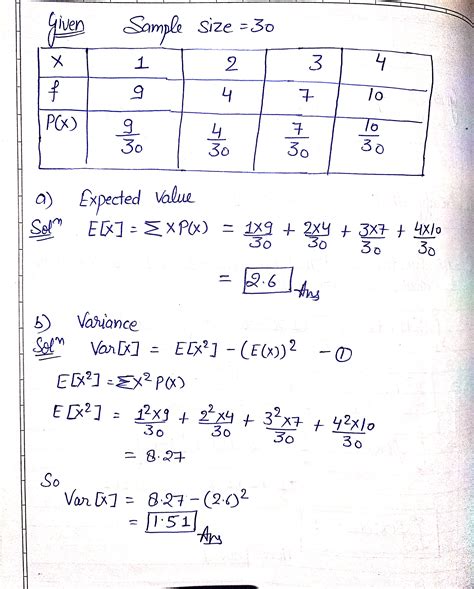 Given Sample size = 30
X 1 2 3 4
f 9 4 7 10
P(X) 9/30 4/30 7/30 10/30
a) Expected Value
Solⁿ E[X] = ΣXP(X) = 1×9/30 + 2×4/30 + 3×7/30 + 4×10/30
= 2.6 Ans
b) Variance
Solⁿ Var[X] = E[X²] - (E(X))² - ①
E[X²] = ΣX²P(X)
E[X²] = 1²×9/30 + 2²×4/30 + 3²×7/30 + 4²×10/30
= 8.27
So
Var[X] = 8.27 - (2.6)²
= 1.51 Ans